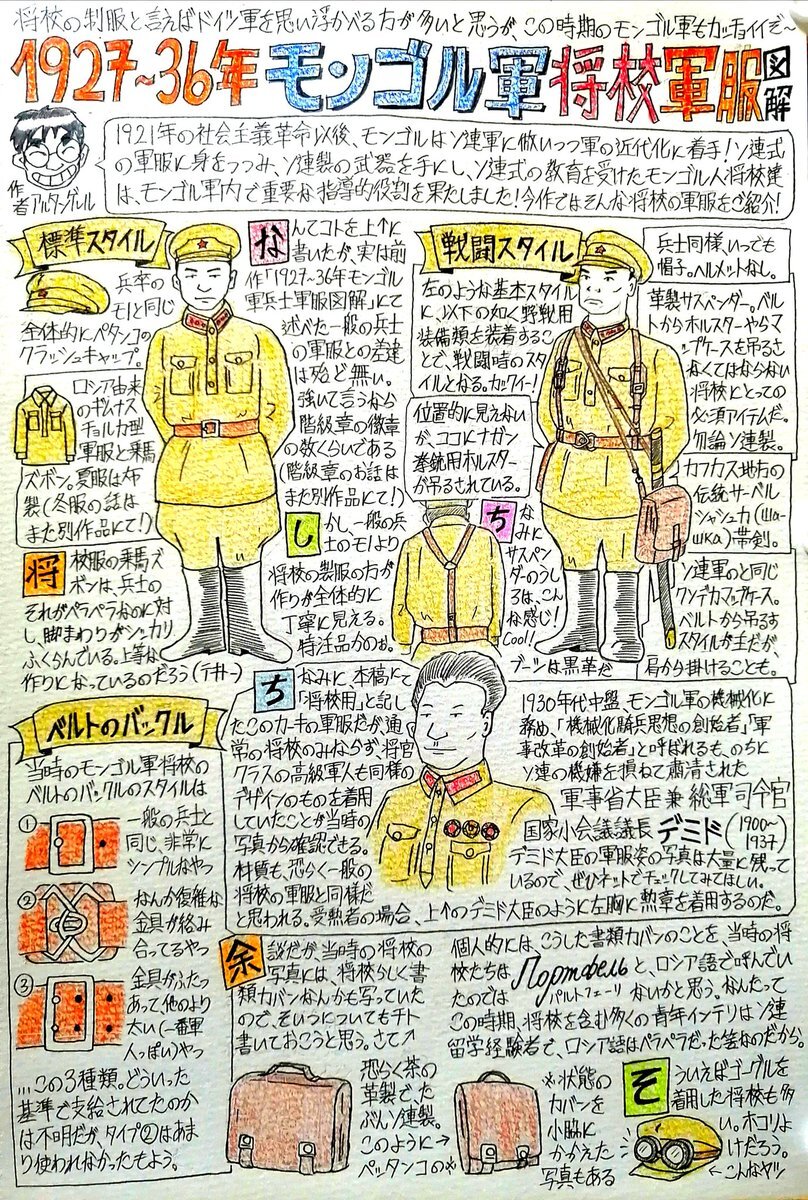 将校の制服と言えばドイツ軍を思い浮かべる方が多いと思うが、この時期のモンゴル軍もカッチョイイぞ~
1927~36年モンゴル軍将校軍服図解
作者アルタンゲレル
1921年の社会主義革命以後、モンゴルはソ連軍に倣いつつ軍の近代化に着手!ソ連式
の軍服に身をつつみ、ソ連製の武器を手にし、ソ連式の教育を受けたモンゴル人将校達
は、モンゴル軍内で重要な指導的役割を果たしました!今作ではそんな将校の軍服をご紹介!
標準スタイル
兵卒の
モノと同じ
全体的にペタンコの
クラッシュキャップ。
ロシア由来
のギムナス
チョルカ型
軍服と乗馬
ズボン。夏服は布
製(冬服の話は
また別作品にて!)
将校服の乗馬ズ
ボンは、兵士の
それがペラペラなのに対
し、脚まわりがシッカリ
ふくらんでいる。上等な
作りになっているのだろう(テキトー)
なんてコトを上に
書いたが、実は前
作「1927~36年モンゴル
軍兵士軍服図解」にて
述べた一般の兵士
の軍服との差違
は殆ど無い。
強いて言うなら
階級章の徽章
の数くらいである
(階級章のお話は
また別作品にて!)
しかし、一般の兵
士のモノより
将校の製服の方が
作りが全体的に
丁寧に見える。
特注品かのぉ。
戦闘スタイル
左のような基本スタイル
に、以下の如く野戦用
装備類を装着するこ
とで、戦闘時のスタ
イルとなる。カックイー!
位置的に見えない
が、ココにナガン
拳銃用ホルスター
が吊るされている。
ちなみに
サスペン
ダーのうし
ろは、こん
な感じ!
Cool!!
ブーツは黒革だ
兵士同様、いつでも
帽子。ヘルメットなし。
革製サスペンダー。ベル
トからホルスターやらマ
ップケースを吊るさ
なくてはならない
将校にとっての
必須アイテムだ。
勿論ソ連製。
カフカス地方の
伝統サーベル
シャシュカ(Ша-
шка)帯剣。
ソ連軍のと同じ
マップケース。
ベルトから吊るす
スタイルが主だが、
肩から掛けることも。
ちなみに、本稿にて
「将校用」と記し
たこのカーキの軍服だが、通
常の将校のみならず、将官
クラスの高級軍人も同様の
デザインのものを着用
していたことが当時の
写真から確認できる。
材質も、恐らく一般の
将校の軍服と同様だ
と思われる。受勲者の場合、上のデミド大臣のように左胸に勲章を着用するのだ。
1930年代中盤、モンゴル軍の機械化に
務め、「機械化騎兵思想の創始者」「軍
事改革の創始者」と呼ばれるも、のちに
ソ連の機嫌を損ねて粛清された
軍事省大臣兼総軍司令官
国家小会議議長デミド(1900~1937)
デミド大臣の軍服姿の写真は大量に残って
いるので、ぜひネットでチェックしてみてほしい。
ベルトのバックル
当時のモンゴル軍将校の
ベルトのバックルのスタイルは
①
一般の兵士と
同じ、非常に
シンプルなやつ
②
なんか複雑な
金具が絡み
合ってるやつ
③
金具がふたつ
あって、他のより
太い(一番軍
人っぽい)やつ
…この3種類。どういった
基準で支給されてたのか
は不明だが、タイプ②はあま
り使われなかったもよう。
余談だが、当時の将校の
写真には、将校らしく書
類カバンなんかも写っていた
ので、そいつについてもチト
書いておこうと思う。さて
個人的には、こうした書類カバンのことを、当時の将
校たちは Портфель と、ロシア語で呼んでい
パルトフェーリ
たのではないかと思う。なんたって
この時期、将校を含む多くの青年インテリはソ連
留学経験者で、ロシア語はペラペラだった筈なのだから。
恐らく茶の
革製で、た
ぶんソ連製。
このように→
ペッタンコの※
※状態の
カバンを
小脇に
かかえた
写真もある
そういえばゴーグルを
着用した将校も多
い。ホコリよ
けだろう。
←こんなヤツ